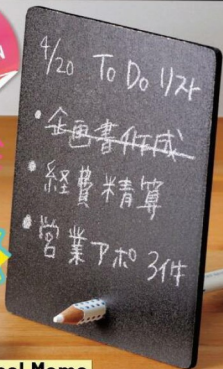 4/20 To Do リスト
・企画書作成
・経費精算
・営業アポ 3件